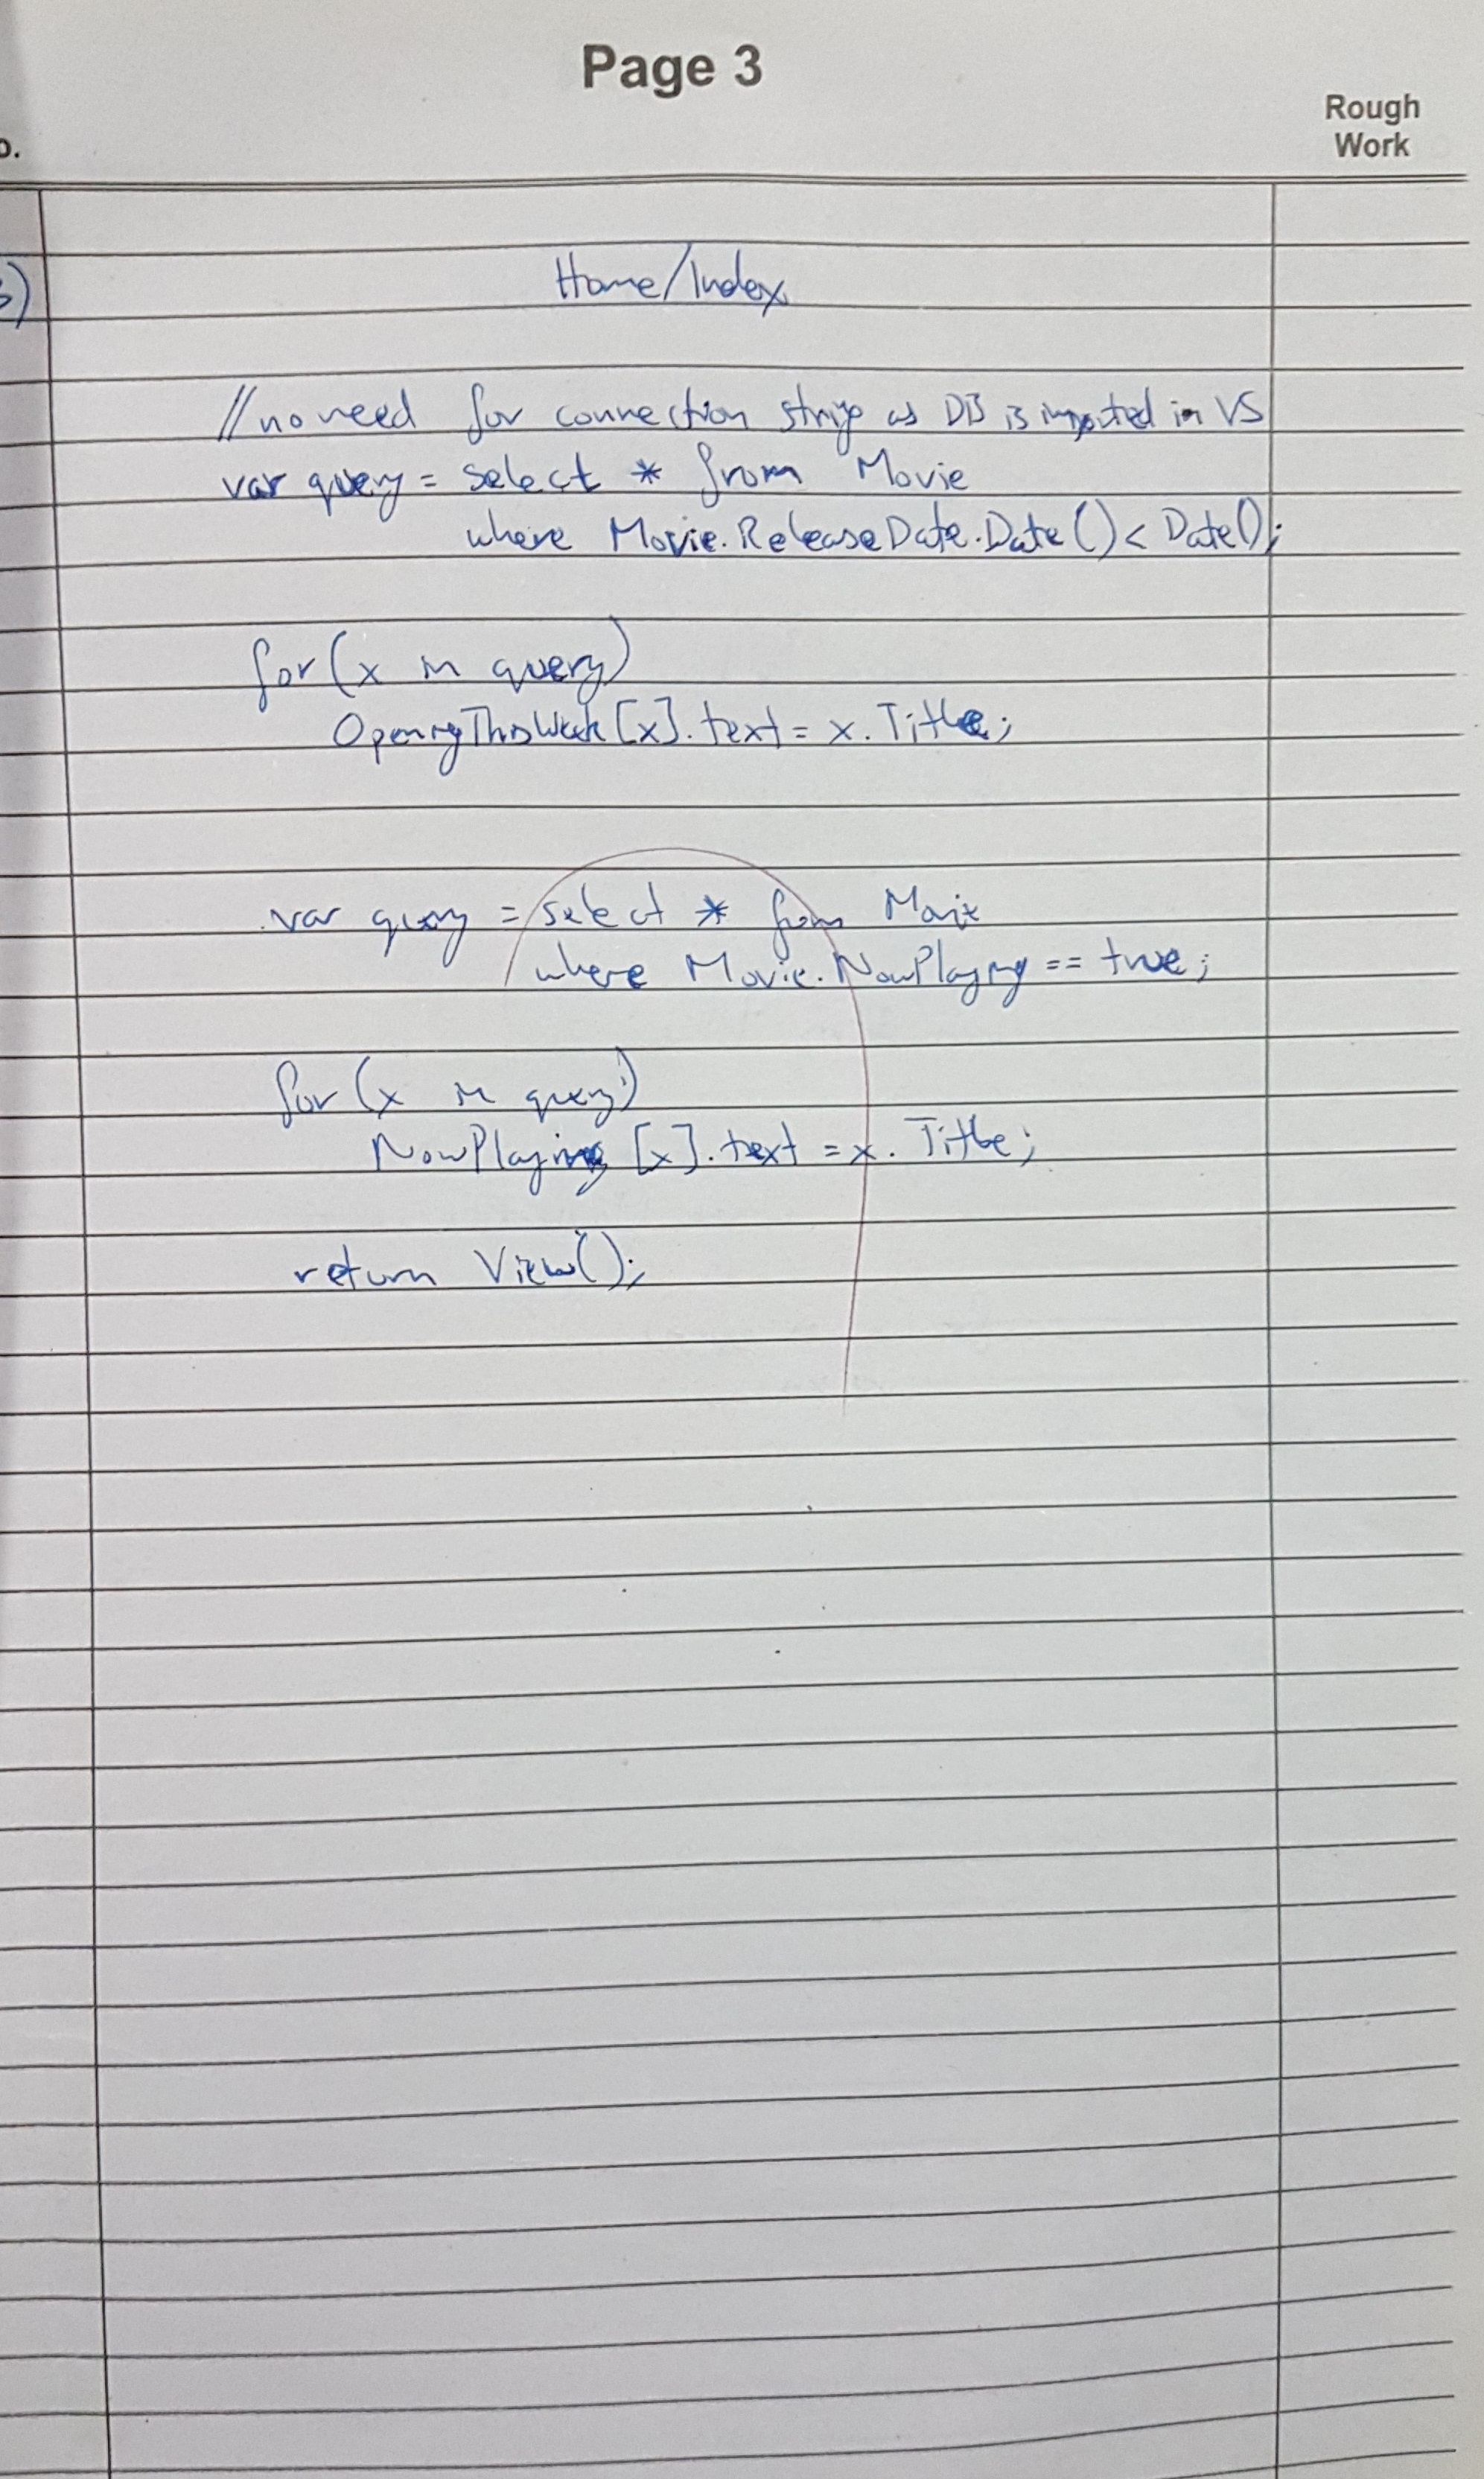 Page 3
Rough
Work
Home/Index
//no need for connection strings as DB is imported in VS
var query = select * from Movie
where Movie.ReleaseDate.Date() < Date();
for (x in query)
OpeningThisWeek[x].text = x.Title;
var query = select * from Movie
where Movie.NowPlaying == true;
for (x in query)
NowPlaying [x].text = x.Title;
return View();